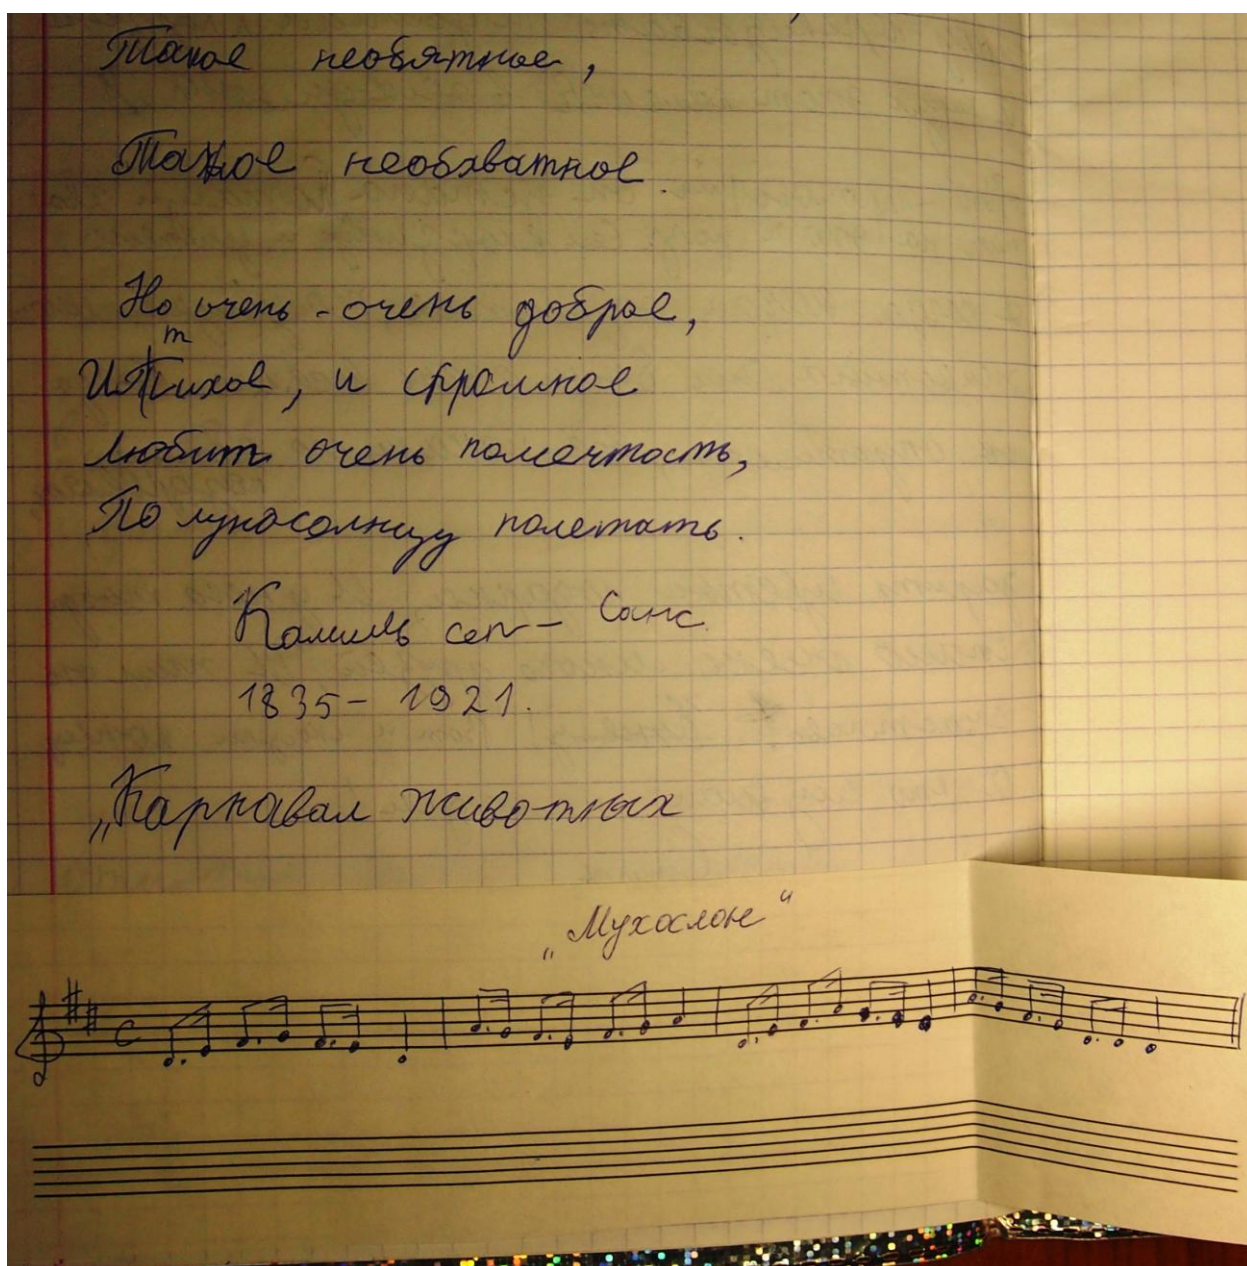 Такое необятное,
Такое необхватное.
Но очень-очень доброе,
И тихое, и скромное
Любит очень помечтость,
По луносолнцу полетать.
Камиль сен-Санс.
1835-1921.
„Карнавал животных
„Мухослон"